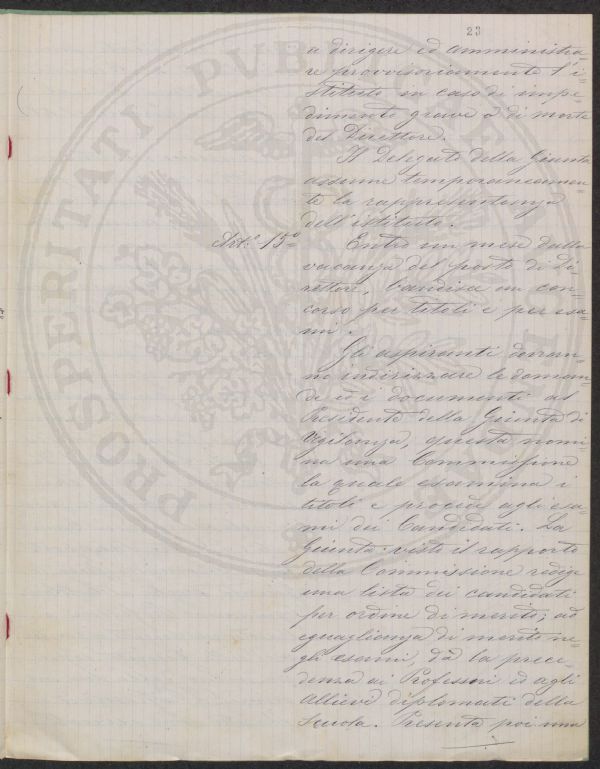 23
a dirigere ed amministra=
re provvisoriamente l'i=
stituto in caso di impe=
dimento grave o di morte
del Direttore.
Il Delegato della Giunta
assume temporaneamen=
te la rappresentanza
dell'istituto.
Art.º 15º= Entro un mese dalla
vacanza del posto di Di=
rettore, bandisce un con=
corso per titoli e per esa=
mi.
Gli aspiranti dovran=
no indirizzare le doman=
de ed i documenti al
Presidente della Giunta di
Vigilanza, questa nomi=
na una Commissione
la quale esamina i
titoli e procede agli esa=
mi dei Candidati. La
Giunta visto il rapporto
della Commissione redige
una lista dei candidati
per ordine di merito; ad
eguaglianza di merito ne=
gli esami, dà la prece=
denza ai Professori ed agli
Allievi diplomati della
Scuola. Presenta poi una
PROSPERITATI PUBLICAE